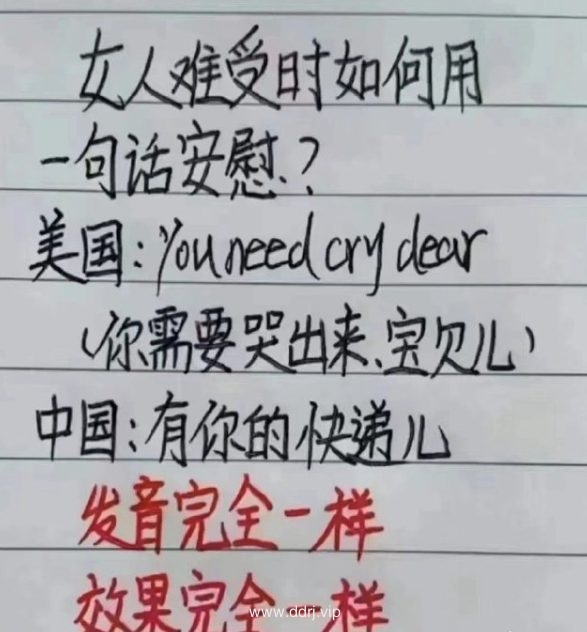 女人难受时如何用
一句话安慰?
美国:You need cry dear
(你需要哭出来、宝欠儿)
中国:有你的快递儿
发音完全一样
效果完全一样
www.ddrj.vip